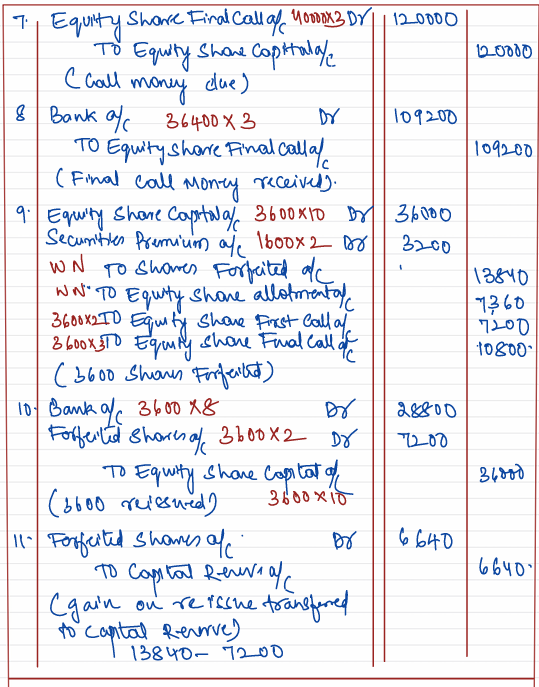 7. Equity Share Final Call a/c 40000x3 Dr 120000
TO Equity Share Capital a/c 120000
(Call money due)
8 Bank a/c 36400 x 3 Dr 109200
TO Equity Share Final Call a/c 109200
(Final Call Money received).
9. Equity Share Capital a/c 3600x10 Dr 36000
Securities Premium a/c 1600x2 Dr 3200
WN TO Shares Forfeited a/c 13840
WN. TO Equity Share allotment a/c 7360
3600x2 TO Equity Share First Call a/c 7200
3600x3 TO Equity Share Final Call a/c 10800.
(3600 Shares Forfeited)
10. Bank a/c 3600 x8 Dr 28800
Forfeited Shares a/c 3600x2 Dr 7200
TO Equity Share Capital a/c 36000
(3600 reissued) 3600 x10
11. Forfeited Shares a/c. Dr 6640
TO Capital Reserve a/c 6640.
(gain on reissue transferred
to Capital Reserve)
13840- 7200